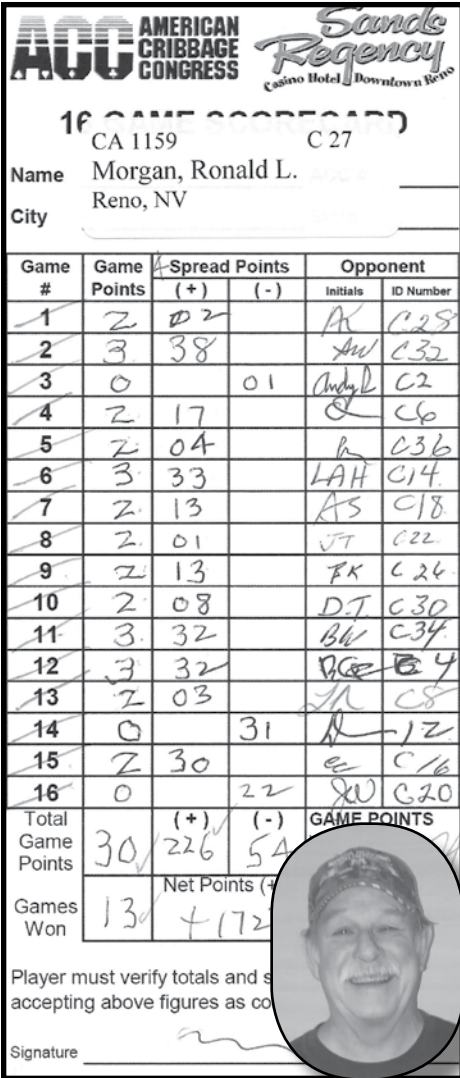 ACC AMERICAN
CRIBBAGE
CONGRESS
Sands
Regency
Casino Hotel Downtown Reno
16 GAME SCORECARD
CA 1159 C 27
Name Morgan, Ronald L.
City Reno, NV
Game Game Spread Points Opponent
# Points (+) (-) Initials ID Number
1 2 02 AK C28
2 3 38 AW C32
3 0 01 Andy R C2
4 2 17 C6
5 2 04 C36
6 3 33 LAH C14
7 2 13 AS C18
8 2 01 JT C22
9 2 13 BK C26
10 2 08 D.T. C30
11 3 32 BW C34
12 3 32 4
13 2 03 C8
14 0 31 12
15 2 30 ec C16
16 0 22 JW C20
Total (+) (-) GAME POINTS
Game
Points 30 226 54
Net Points (+
Games
Won 13 +172
Player must verify totals and s
accepting above figures as co
Signature